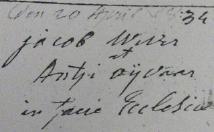 Den 20 April 1834
jacob Wever
et
Antje
in facie Ecclesiae